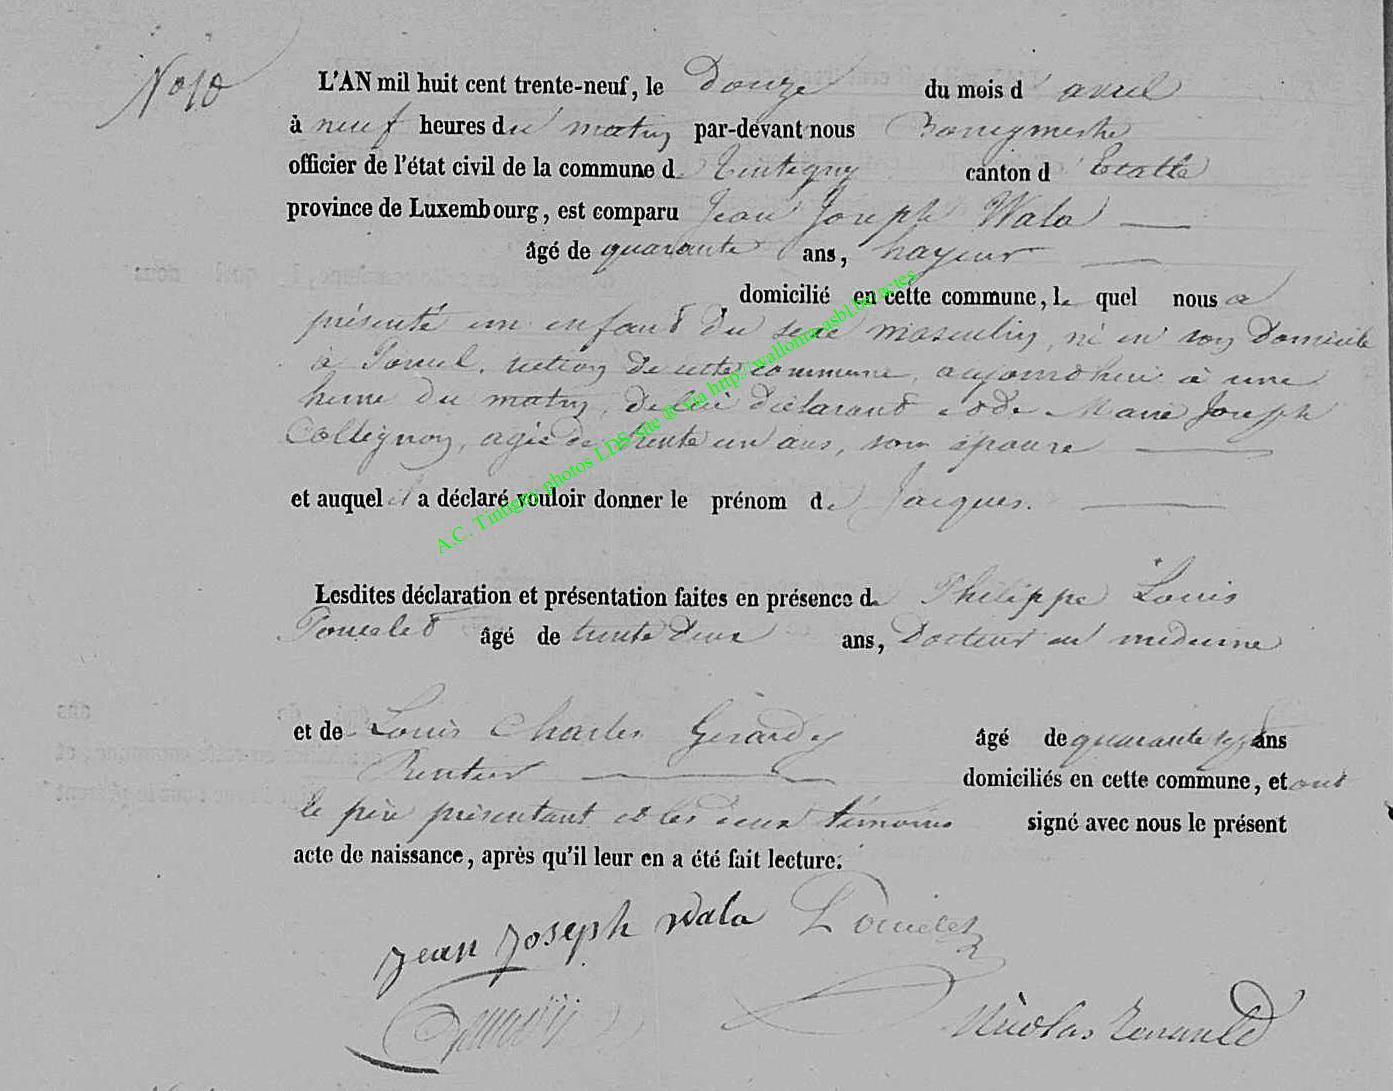 No 10
L'AN mil huit cent trente-neuf, le Douze du mois d'avril
à neuf heures du matin par-devant nous Bourgmestre
officier de l'état civil de la commune de Tintigny canton d'Etalle
province de Luxembourg, est comparu Jean Joseph Wala
âgé de quarante ans, hayeur
domicilié en cette commune, le quel nous a
présenté un enfant du sexe masculin, né en son domicile
à Poncel, section de cette commune, aujourd'hui à une
heure du matin, de lui déclarant et de Marie Joseph
Collignon, agée de trente un ans, son épouse
et auquel il a déclaré vouloir donner le prénom de Jacques.
Lesdites déclaration et présentation faites en présence de Philippe Louis
Poncelet âgé de trente deux ans, Docteur en médecine
et de Louis Charles Gérardy âgé de quarante six ans
Rentier domiciliés en cette commune, et ont
le père présentant et les deux témoins signé avec nous le présent
acte de naissance, après qu'il leur en a été fait lecture.
Jean Joseph Wala Poncelet
Nicolas
A.C. Tintigny photos LDS site @ via http://walloniaasbl.be/actes